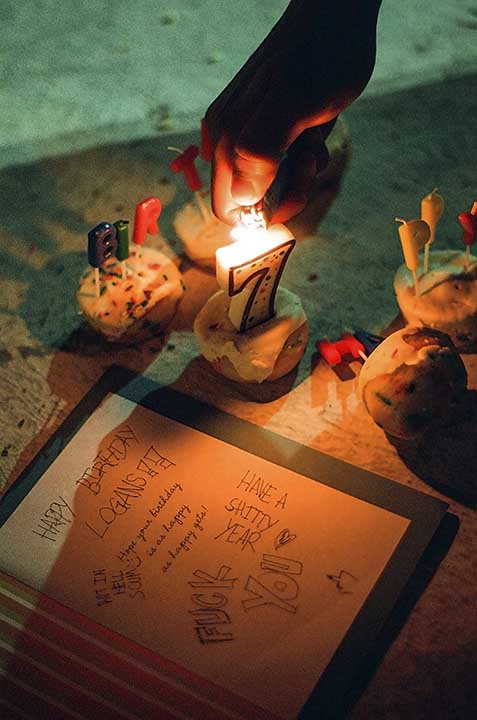 7
HAPPY BIRTHDAY
LOGANS
Hope your birthday
is as happy
as happy gets!
HAVE A
SHITTY
YEAR
FUCK
YOU
IN
HELL
SOON